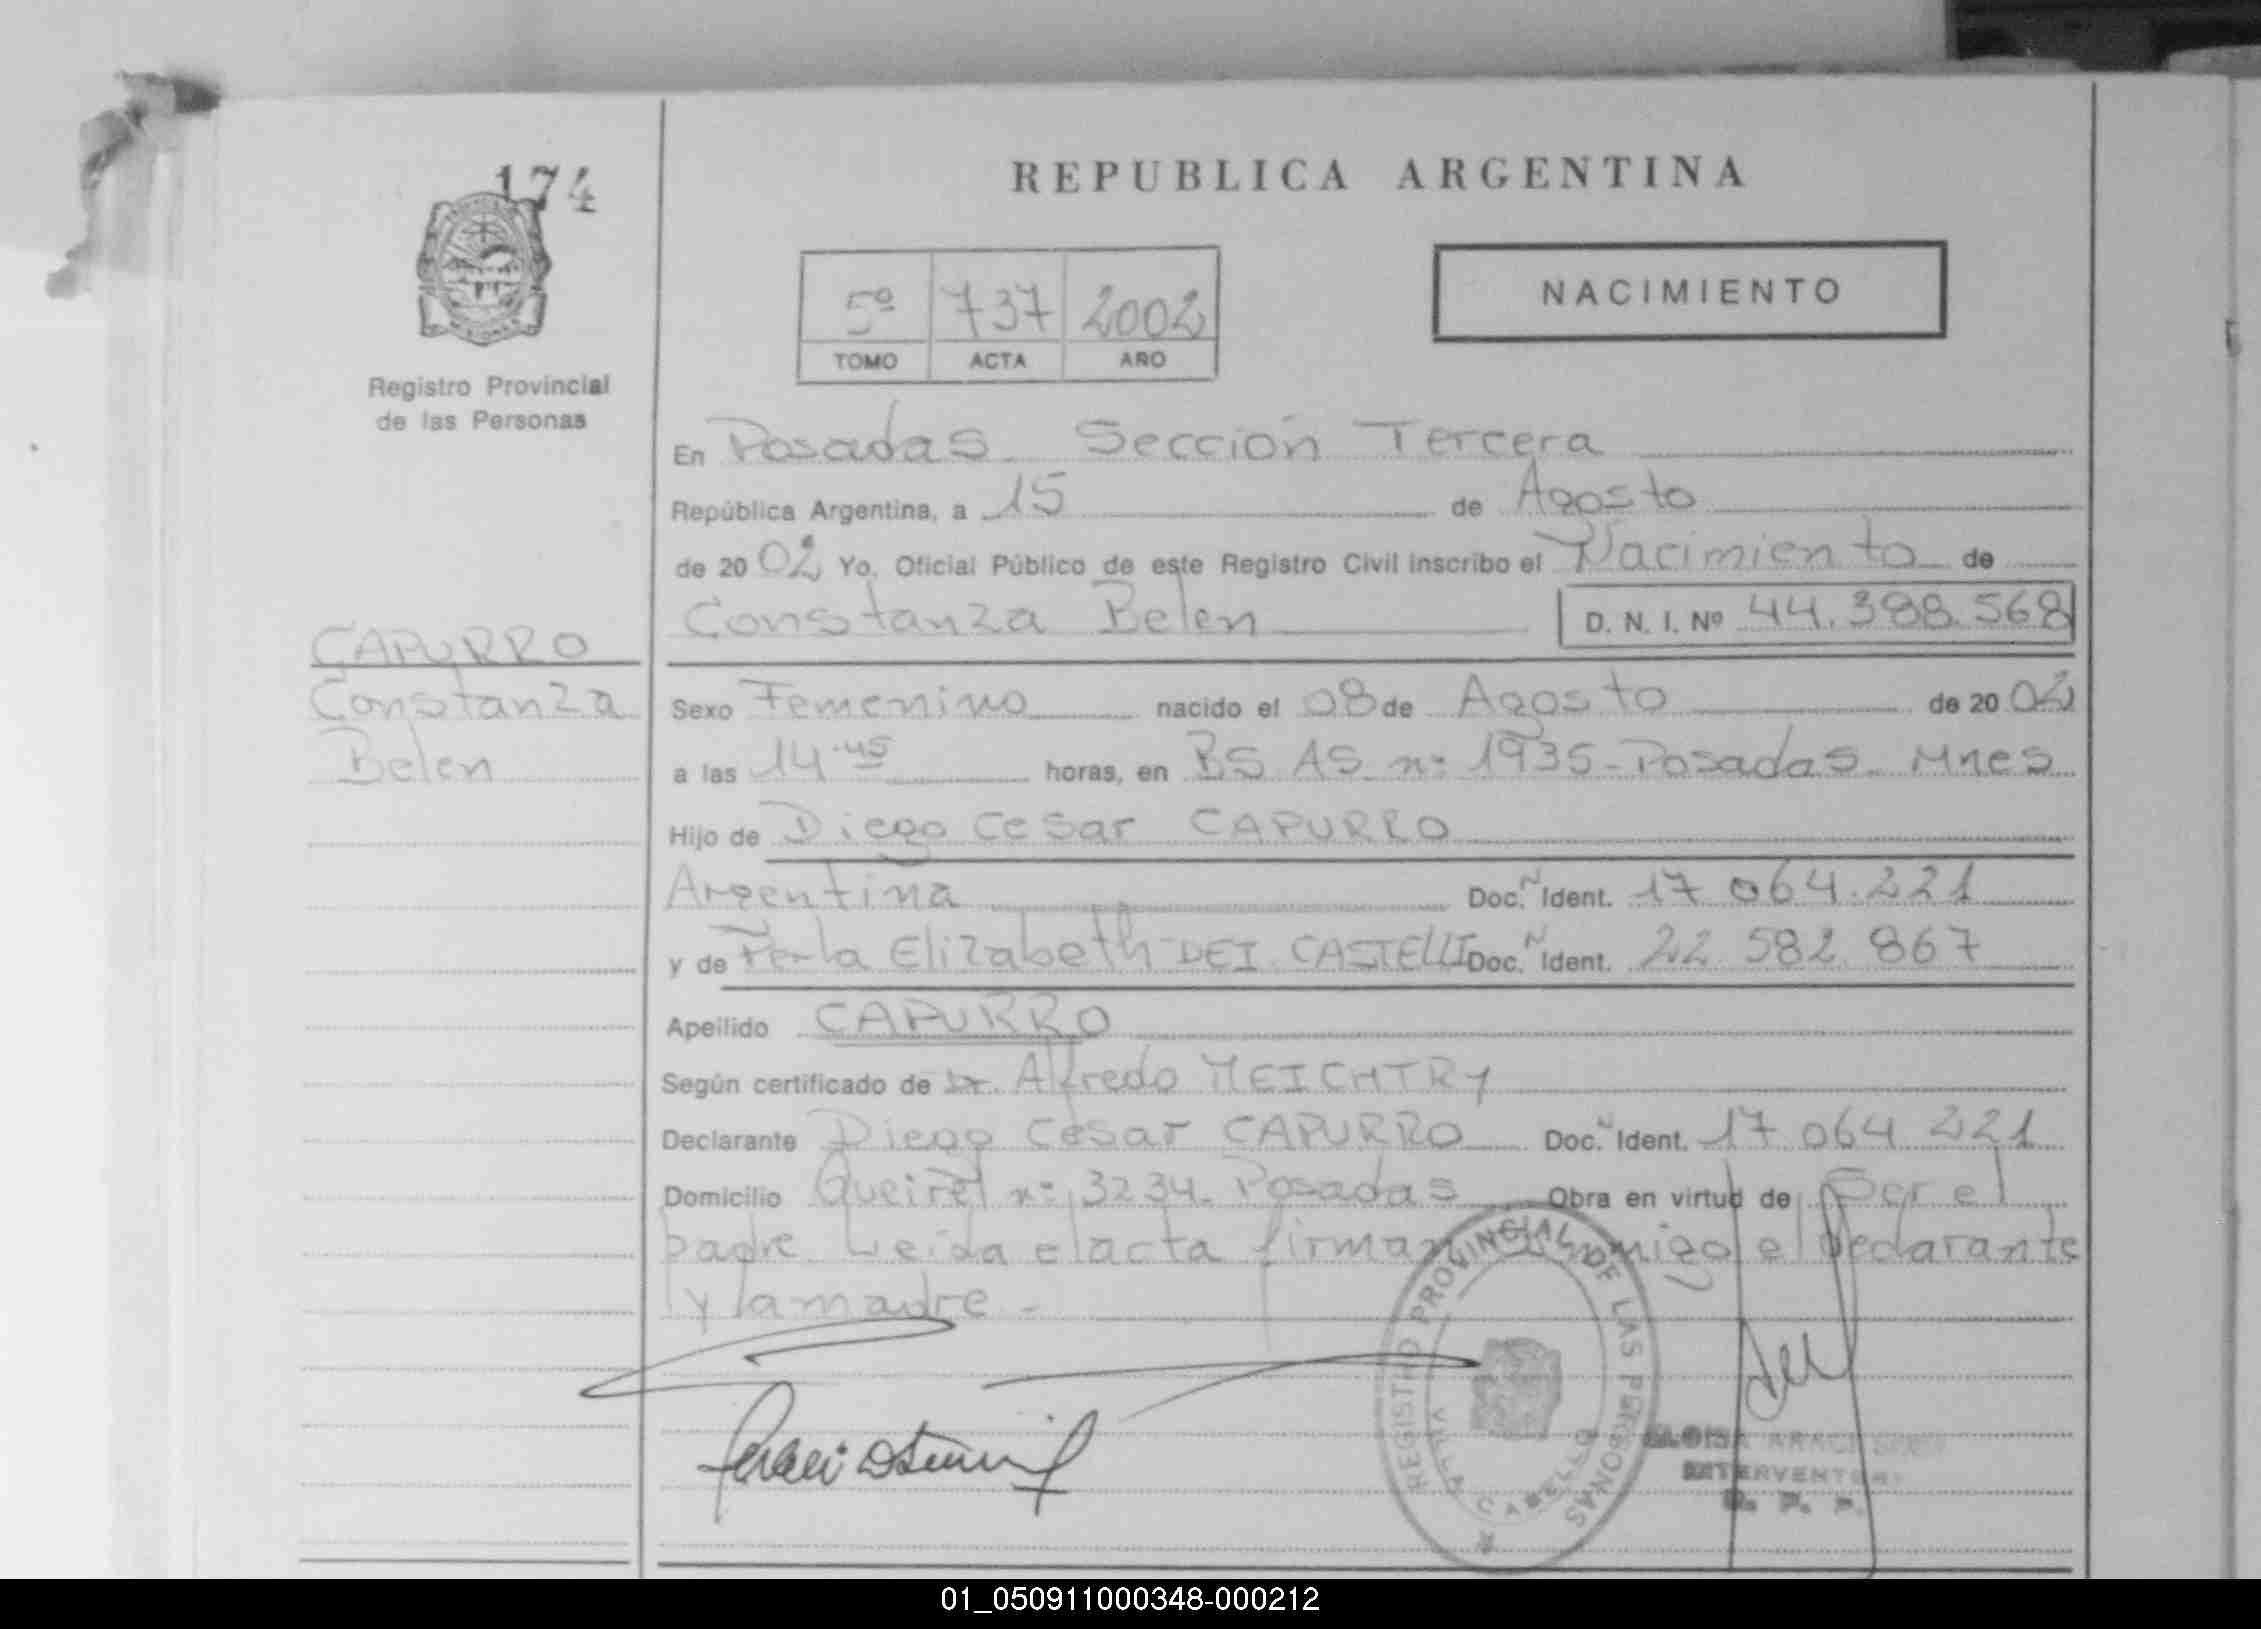 174
REPUBLICA ARGENTINA
NACIMIENTO
5º 737 2002
TOMO ACTA AÑO
Registro Provincial
de las Personas
En Posadas Sección Tercera
República Argentina, a 15 de Agosto
de 2002 Yo, Oficial Público de este Registro Civil inscribo el Nacimiento de
Constanza Belen D. N. I. Nº 44.388.568
CAPURRO
Constanza
Belen
Sexo Femenino nacido el 08 de Agosto de 2002
a las 14.45 horas, en BS AS nº 1935 - Posadas Mnes
Hijo de Diego Cesar CAPURRO
Argentina Doc. N Ident. 17 064.221
y de Perla Elizabeth DEI CASTELLI Doc. N Ident. 22 582 867
Apellido CAPURRO
Según certificado de Dr. Alfredo MEICHTRY
Declarante Diego Cesar CAPURRO Doc. N Ident. 17 064 221
Domicilio Queirel nº 3234 - Posadas Obra en virtud de Ser el
padre Leida el acta firman conmigo el declarante
y la madre -
REGISTRO PROVINCIAL DE LAS PERSONAS
VILLA CABELLO
INTERVENTORA
R. P. P.
01_050911000348-000212